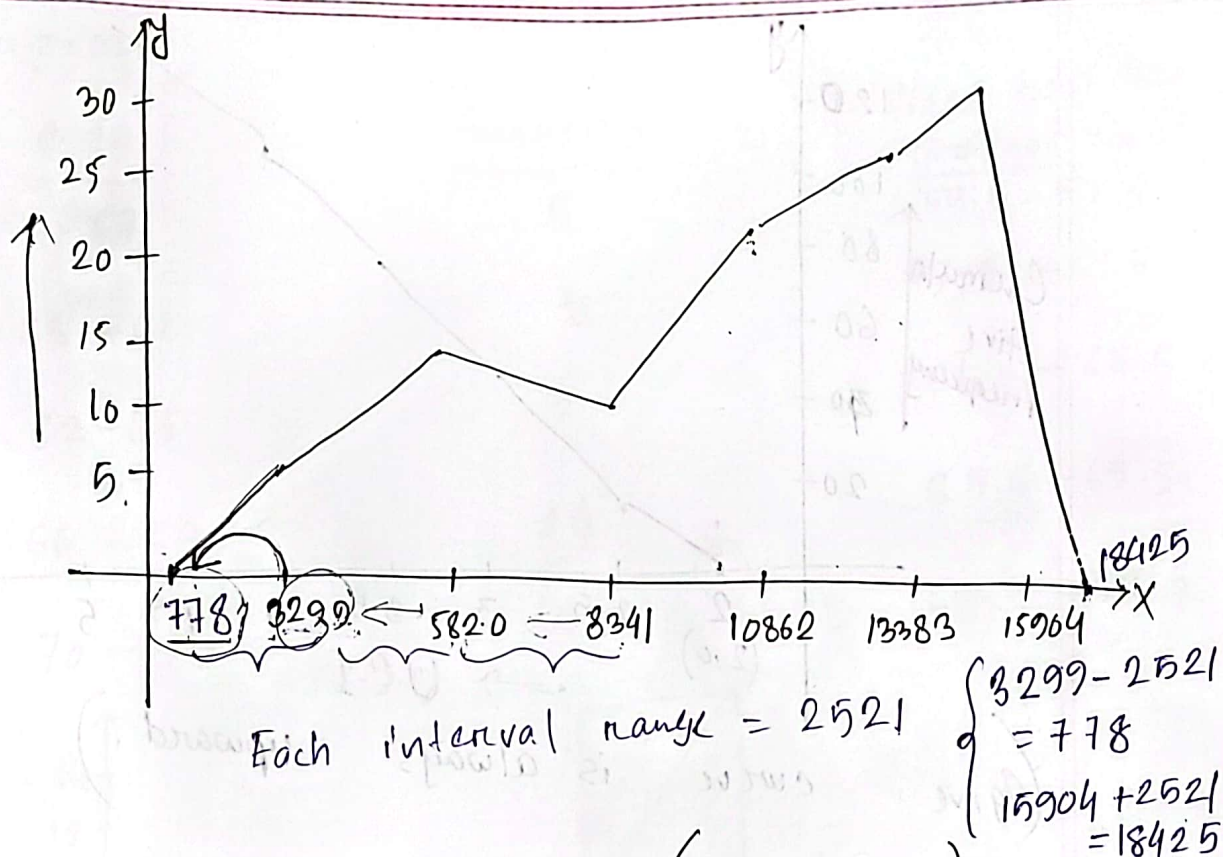 y
30
25
20
15
10
5
778 3299 5820 8341 10862 13383 15904 18425 X
Each interval range = 2521
3299 - 2521
= 778
15904 + 2521
= 18425